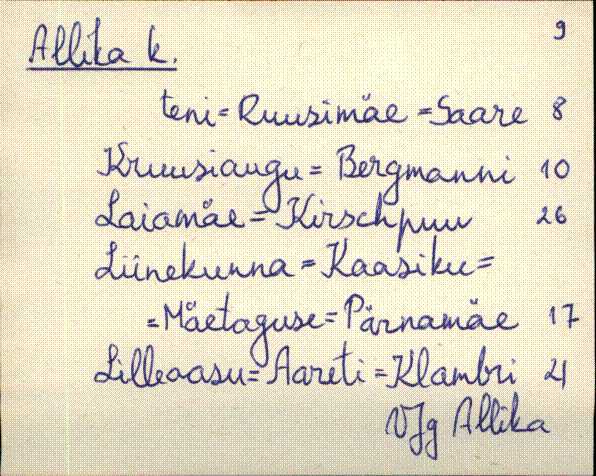 9
Allika k.
teni = Ruusimäe = Saare 8
Kruusiaugu = Bergmanni 10
Laiamäe = Kirschpuu 26
Liinekunna = Kaasiku =
= Mäetaguse = Pärnamäe 17
Lilleaasu = Aareti = Klambri 21
VJg Allika